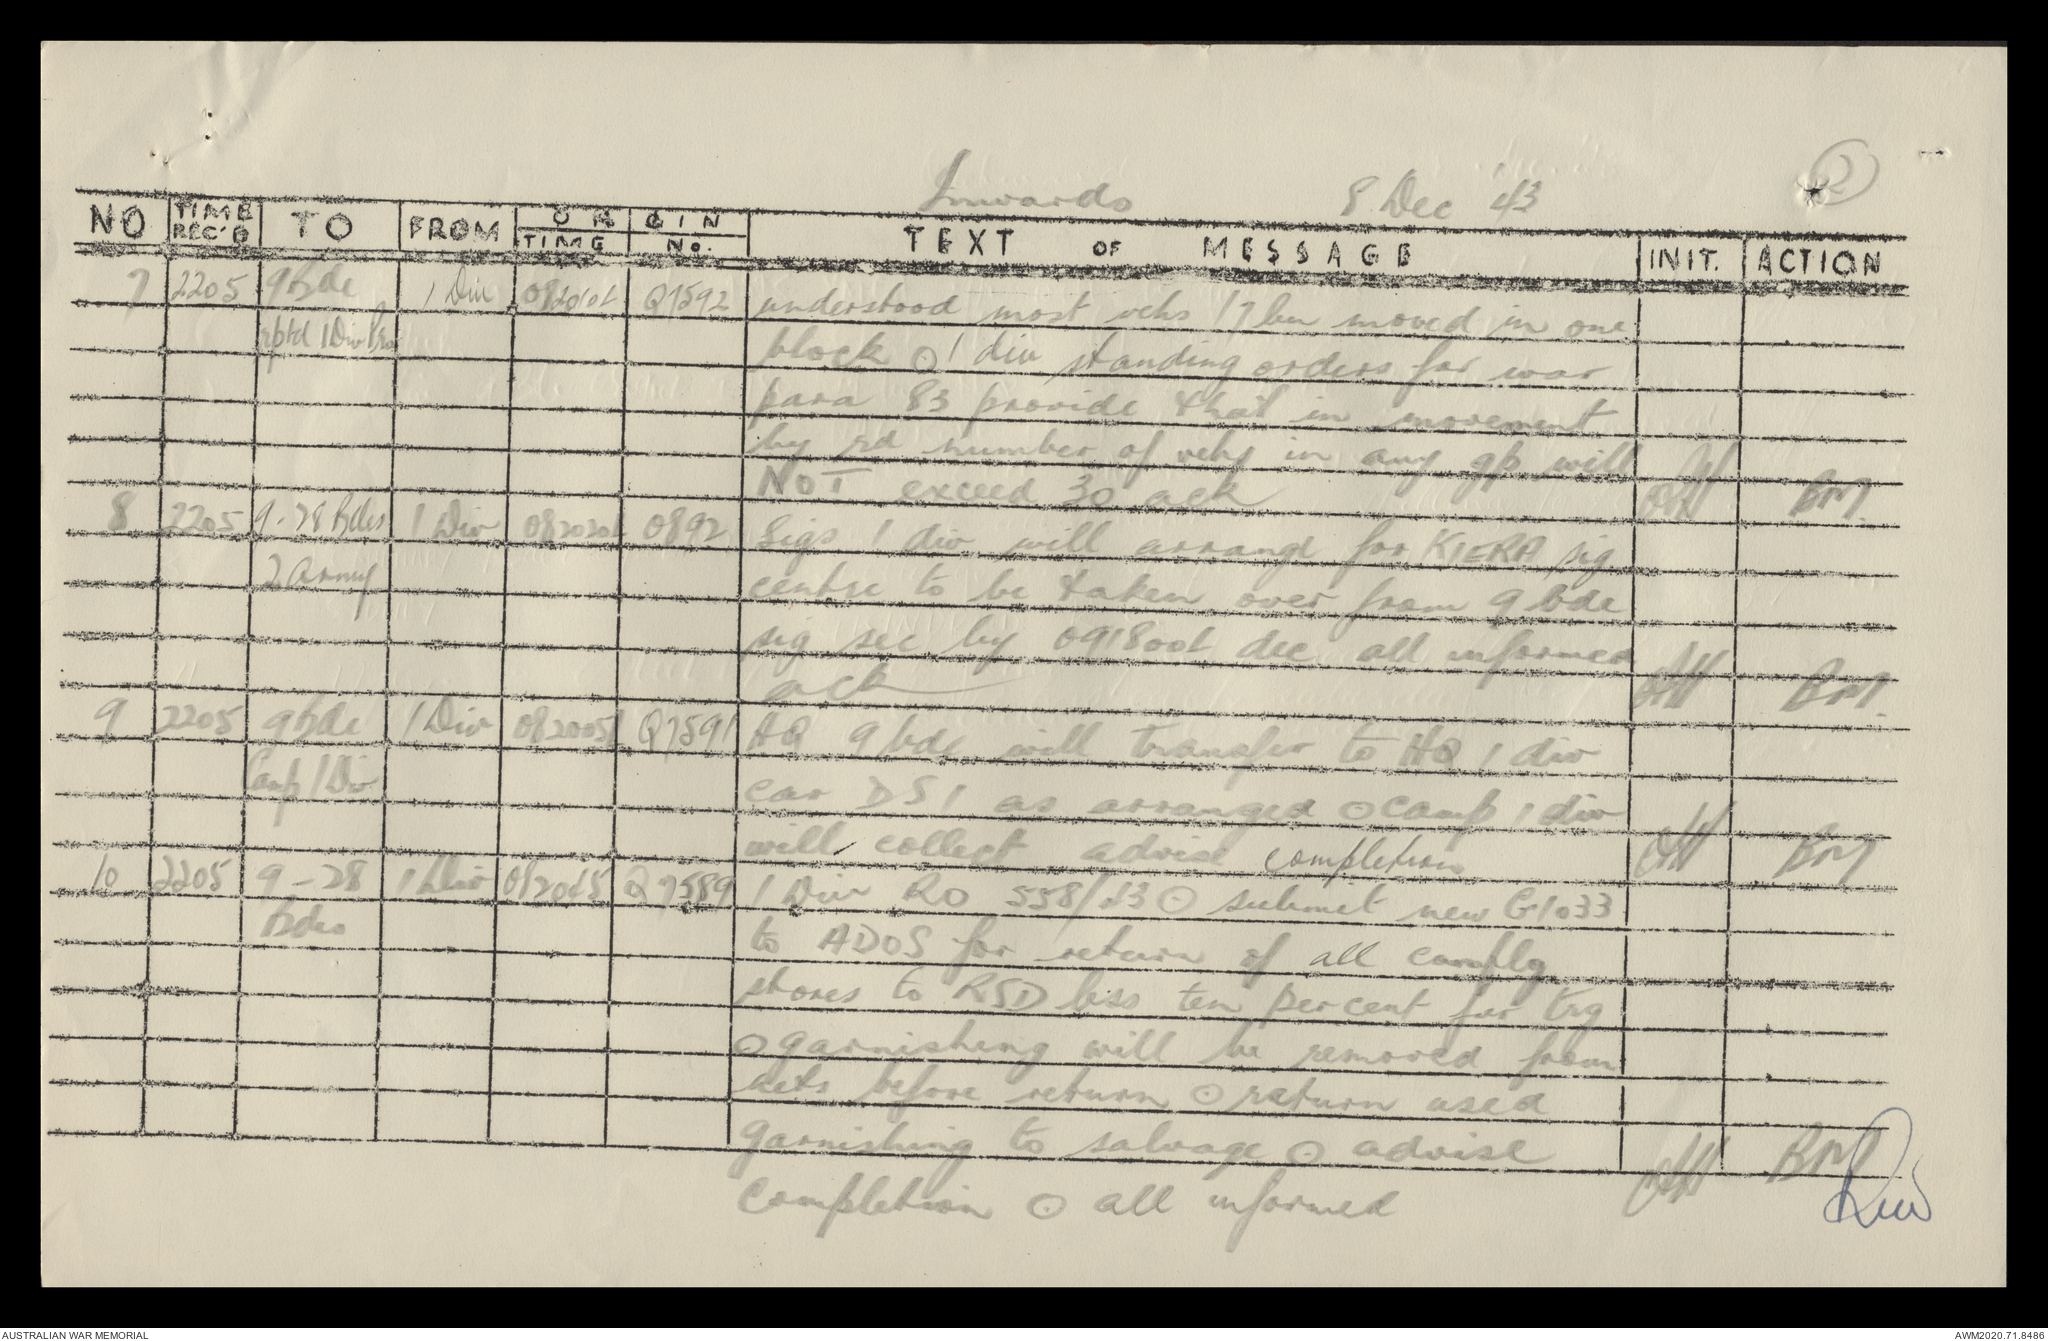 Inwards 8 Dec 43 2
NO TIME REC'D TO FROM ORIGIN TIME No. TEXT OF MESSAGE INIT. ACTION
7 2205 9 Bde 1 Div 082010L Q7592 understood most vehs 17 bn moved in one
rptd 1 Div Pro block ⊙ 1 div standing orders for war
para 83 provide that in movement
by rd number of vehs in any gp will
NOT exceed 30 ack BM
8 2205 9-28 Bdes 1 Div 082020L 0892 Sigs 1 div will arrange for KIERA sig
2 Army centre to be taken over from 9 bde
sig sec by 091800L dec all informed
ack BM
9 2205 9 bde 1 Div 082005L Q7591 HQ 9 bde will transfer to HQ 1 div
Camp 1 Div car DS1 as arranged ⊙ camp 1 div
will collect advise completion BM
10 2205 9-28 1 Div 082045 Q7589 1 Div RO 558/43 ⊙ submit new G1033
Bdes to ADOS for return of all camflg
stores to RSD less ten percent for trg
⊙ garnishing will be removed from
nets before return ⊙ return used
garnishing to salvage ⊙ advise BM
completion ⊙ all informed
AUSTRALIAN WAR MEMORIAL AWM2020.71.8486